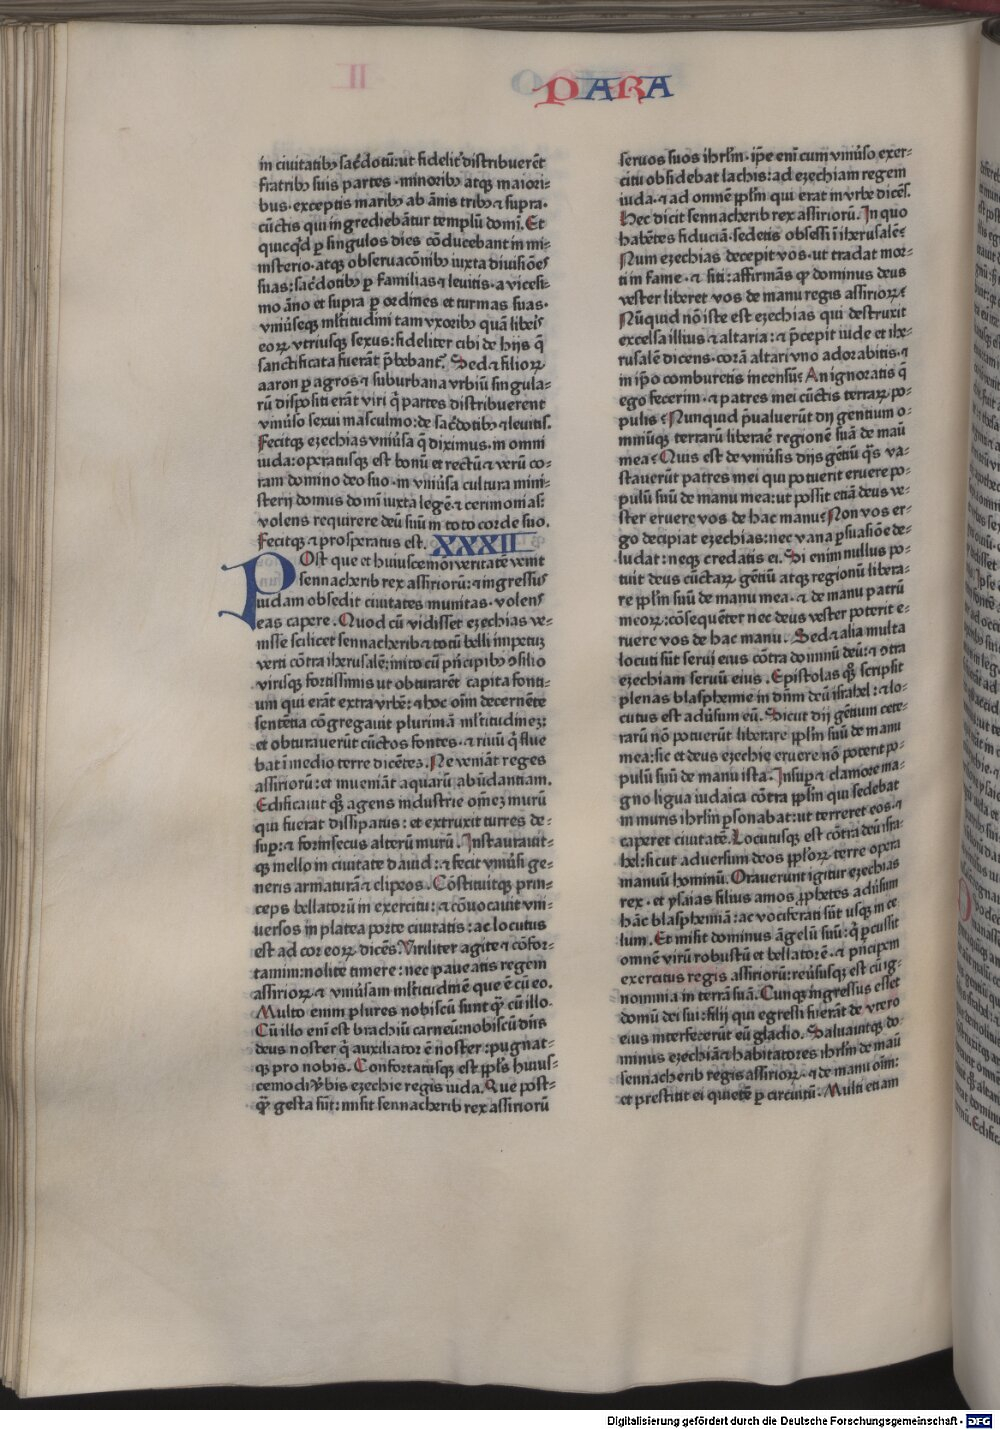 PARA
in ciuitatibꝫ sac̄dotū: ut fidelit᷒ distribuerēt
fratribꝫ suis partes · minoribꝫ atqꝫ maiori⸗
bus · exceptis maribꝫ ab ānis tribꝫ ⁊ supra ·
cūctis qui ingrediebātur templū domī. Et
quicq̄d ꝑ singulos dies cōducebant in mi⸗
nisterio · atqꝫ obseruacōnibꝫ iuxta diuisiōes
suas: sac̄dotibꝫ ꝑ familias ⁊ leuitis · a vicesi⸗
mo āno et supra ꝑ ordines et turmas suas ·
vniūseqꝫ ml̄titudini tam vxoribꝫ quā liberis
eoꝝ vtriusqꝫ sexus: fideliter cibi de hijs q̄
sanctificata fuerāt p̄bebant᷒. Sed ⁊ filioꝝ
aaron ꝑ agros ⁊ suburbana vrbiū singula⸗
rū dispositi erāt viri q̄ partes distribuerent
vniūso sexui masculino: de sac̄dotibꝫ ⁊ leuitis.
Fecitqꝫ ezechias vniūsa q̄ diximus · in omni
iuda: operatusqꝫ est bonū et rectū ⁊ verū co⸗
ram domino deo suo · in vniūsa cultura mini⸗
sterij domus domī iuxta legē ⁊ cerimonias:
volens requirere deū suū in toto corde suo.
Fecitqꝫ ⁊ prosperatus est. XXXII
POst que et huiuscemōi veritatē venit
sennacherib rex assiriorū: ⁊ ingressus
iudam obsedit ciuitates munitas · volens
eas capere. Quod cū vidisset ezechias ve⸗
nisse scilicet sennacherib ⁊ totū belli impetuꝫ
verti cōtra iherusalē: inito cū p̄ncipibꝫ ꝯsilio
virisqꝫ fortissimis ut obturarēt capita fonti⸗
um qui erāt extra vrbē: ⁊ hoc oīm decernēte
sententia cōgregauit plurimā ml̄titudineꝫ:
et obturauerūt cūctos fontes · ⁊ riuū q̄ flue
bat ī medio terre dicētes. Ne veniāt reges
assiriorū: et inueniāt aquarū abūdantiam.
Edificauit qꝫ agens industrie om̄eꝫ murū
qui fuerat dissipatus: et extruxit turres de⸗
suꝑ: ⁊ forinsecus alterū murū. Instaurauit⸗
qꝫ mello in ciuitate dauid: ⁊ fecit vniūsi ge⸗
neris armaturā ⁊ clipeos. Cōstituitqꝫ prin⸗
ceps bellatorū in exercitu: ⁊ cōuocauit vni⸗
uersos in platea porte ciuitatis: ac locutus
est ad cor eoꝝ dicēs. Viriliter agite ⁊ cōfor⸗
tamini: nolite timere: nec paueatis regem
assirioꝝ ⁊ vniūsam ml̄titudinē que ē cū eo.
Multo enim plures nobiscū sunt q̄ cū illo.
Cū illo enī est brachiū carneū: nobiscū dn̄s
deus noster q̄ auxiliator ē noster: pugnat⸗
qꝫ pro nobis. Confortatusqꝫ est ppl̄s huius⸗
cemodi v̄bis ezechie regis iuda. Que post⸗
q̄ gesta sūt: misit sennacherib rex assiriorū
seruos suos ihrl̄m · ip̄e enī cum vniūso exer⸗
citu obsidebat lachis: ad ezechiam regem
iuda · ⁊ ad omnē ppl̄m qui erat in vrbe dicēs.
Hec dicit sennacherib rex assiriorū. In quo
habētes fiduciā · sedetis obsessi ī iherusalē?
Num ezechias decepit vos · ut tradat mor⸗
ti in fame · ⁊ siti: affirmās qꝫ dominus deus
vester liberet vos de manu regis assirioꝝ?
Nūquid nō iste est ezechias qui destruxit
excelsa illius ⁊ altaria: ⁊ p̄cepit iude et ihe⸗
rusalē dicens · corā altari vno adorabitis · ⁊
in ip̄o comburetis incensū? An ignoratis q̄
ego fecerim · ⁊ patres mei cūctis terraꝝ po⸗
pulis? Nunquid p̄ualuerūt dij gentium o⸗
mniūqꝫ terrarū liberaē regionē suā de manū
mea? Quis est de vniūsis dijs gētiū q̄s va⸗
stauerūt patres mei qui potuerit eruere po⸗
pulū suū de manu mea: ut possit etiā deus ve⸗
ster eruere vos de hac manu? Non vos er⸗
go decipiat ezechias: nec vana ꝑsuasiōe de⸗
ludat: neqꝫ credatis ei. Si enim nullus po⸗
tuit deus cūctaꝝ gētiū atqꝫ regionū libera⸗
re ppl̄m suū de manu mea · ⁊ de manu patrū
meoꝝ: cōsequēter nec deus vester poterit e⸗
ruere vos de hac manu. Sed ⁊ alia multa
locuti sūt serui eius cōtra dominū deū: ⁊ ꝯtra
ezechiam seruū eius. Epistolas qꝫ scripsit
plenas blasphemie in dn̄m deū israhel: ⁊ lo⸗
cutus est adūsum eū. Sicut dij gētium cete⸗
rarū nō potuerūt liberare ppl̄m suū de manu
mea: sic et deus ezechie eruere nō poterit po⸗
pulū suū de manu ista. Insuꝑ ⁊ clamore ma⸗
gno ligua iudaica cōtra ppl̄m qui sedebat
in muris ihrl̄m ꝑsonabat: ut terreret eos · ⁊
caperet ciuitatē. Locutusqꝫ est cōtra deū isra⸗
hel: sicut aduersum deos ppl̄oꝝ terre opera
manuū hominū. Orauerunt igitur ezechias
rex · et ysaias filius amos prophetes adūsum
hāc blasphemiā: ac vociferati sūt usqꝫ in ce
lum. Et misit dominus āgelū suū: q̄ ꝑcussit
omnē virū robustū et bellatorē · ⁊ p̄ncipem
exercitus regis assiriorū: reūsusqꝫ est cū ig⸗
nominia in terrā suā. Cunqꝫ ingressus esset
domū dei sui: filij qui egressi fuerāt de vtero
eius interfecerūt eū gladio. Saluauitqꝫ do⸗
minus ezechiā ⁊ habitatores ihrl̄m de manū
sennacherib regis assirioꝝ · ⁊ de manu oīm:
et prestitit ei quietē ꝑ circuitū. Multi etiam
Digitalisierung gefördert durch die Deutsche Forschungsgemeinschaft - DFG